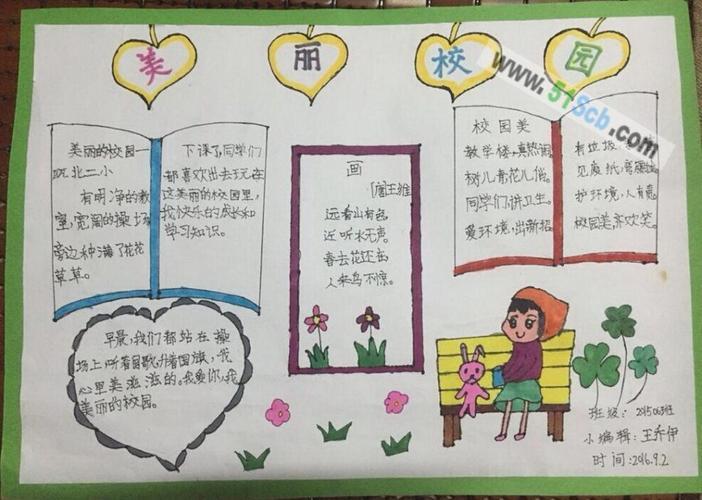 美丽校园
www.51Scb.com
美丽的校园一
北二小
有明净的教
室,宽阔的操场
旁边种满了花花
草草。
下课了,同学们
都喜欢出去玩在
这美丽的校园里,
我们快乐的成长和
学习知识。
画
[唐]王维
远看山有色,
近听水无声。
春去花还在,
人来鸟不惊。
校园美
教学楼,真热闹,
树儿青花儿俏。
同学们,讲卫生。
爱环境,出新招。
有垃圾
见废纸,弯腰捡。
护环境,人有责,
校园美,齐欢笑。
早晨,我们都站在操
场上听着国歌升着国旗,我
心里美滋滋的。我爱你,我
美丽的校园。
班级:201506班
小编辑:王乔伊
时间:2016.9.2